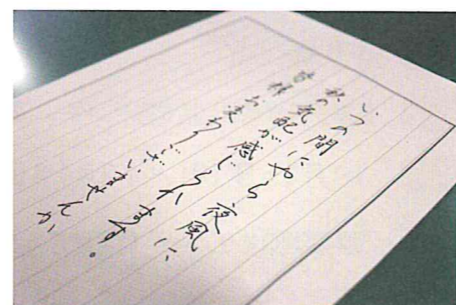 いつの間にやら 夜風に
秋の気配が感じられます。
皆様お変わりございませんか